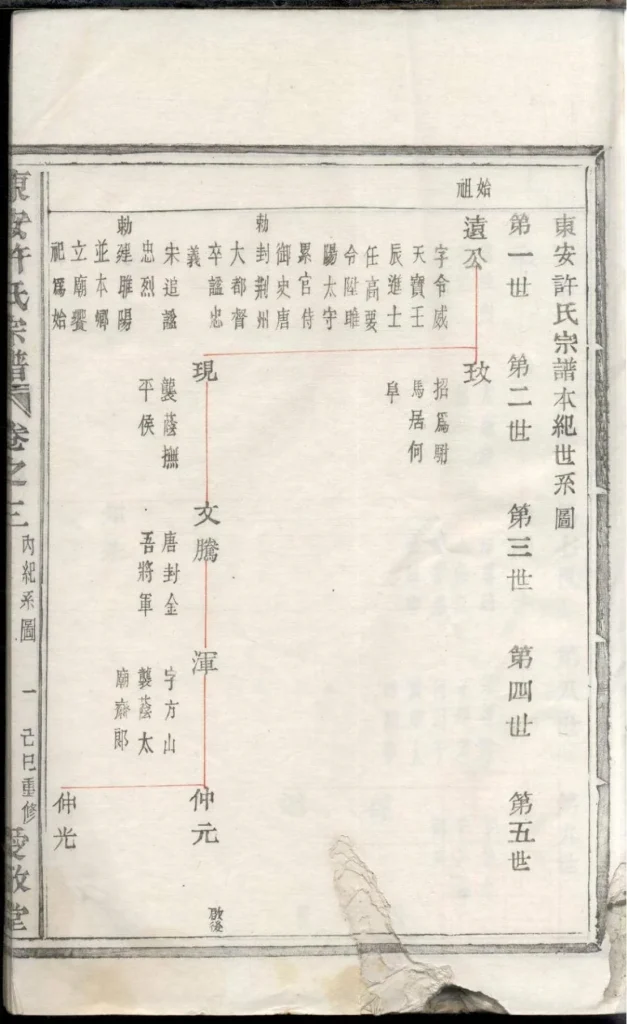 東安許氏宗譜本紀世系圖
第一世
第二世
第三世
第四世
第五世
始祖
遠公
字令威
天寶壬
辰進士
任高要
令陞睢
陽太守
累官侍
御史唐
勅封荆州
大都督
卒謚忠
義
宋追謚
忠烈
勅建睢陽
並本鄉
立廟饗
祀爲始
玫
招爲駙
馬居何
阜
現
襲蔭撫
平侯
文騰
唐封金
吾將軍
渾
字方山
襲蔭太
廟齋郎
仲元
啟後
仲光
東安許氏宗譜
卷之三
內紀系圖
一
己巳重修
愛敬堂